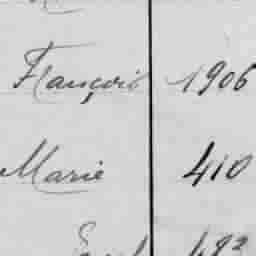 François 1906
Marie 410